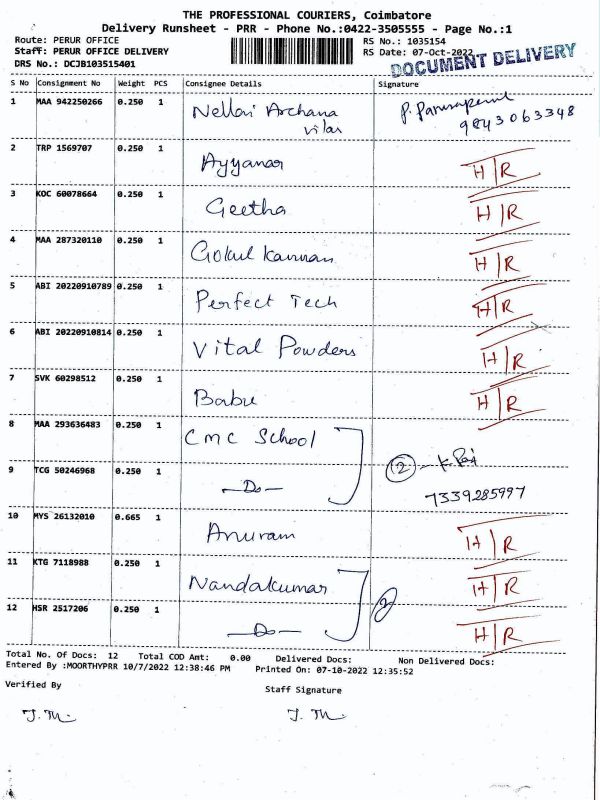 THE PROFESSIONAL COURIERS, Coimbatore
Delivery Runsheet - PRR - Phone No.:0422-3505555 - Page No.:1
Route: PERUR OFFICE
RS No.: 1035154
Staff: PERUR OFFICE DELIVERY
RS Date: 07-Oct-2022
DRS No.: DCJB103515401
DOCUMENT DELIVERY
S No Consignment No Weight PCS Consignee Details Signature
1 MAA 942250266 0.250 1 Nellai Archana
Vilas
9843063348
2 TRP 1569707 0.250 1 Ayyanar H/R
3 KOC 60078664 0.250 1 Geetha H/R
4 MAA 287320110 0.250 1 Gokul Kannan H/R
5 ABI 20220910789 0.250 1 Perfect Tech H/R
6 ABI 20220910814 0.250 1 Vital Powders H/R
7 SVK 60298512 0.250 1 Babu H/R
8 MAA 293636483 0.250 1 CMC School
2
9 TCG 50246968 0.250 1 -Do- 7339285997
10 MYS 26132010 0.665 1 Anuram H/R
11 KTG 7118988 0.250 1 Nandakumar H/R
2
12 HSR 2517206 0.250 1 -Do- H/R
Total No. Of Docs: 12 Total COD Amt: 0.00 Delivered Docs: Non Delivered Docs:
Entered By :MOORTHYPRR 10/7/2022 12:38:46 PM Printed On: 07-10-2022 12:35:52
Verified By Staff Signature